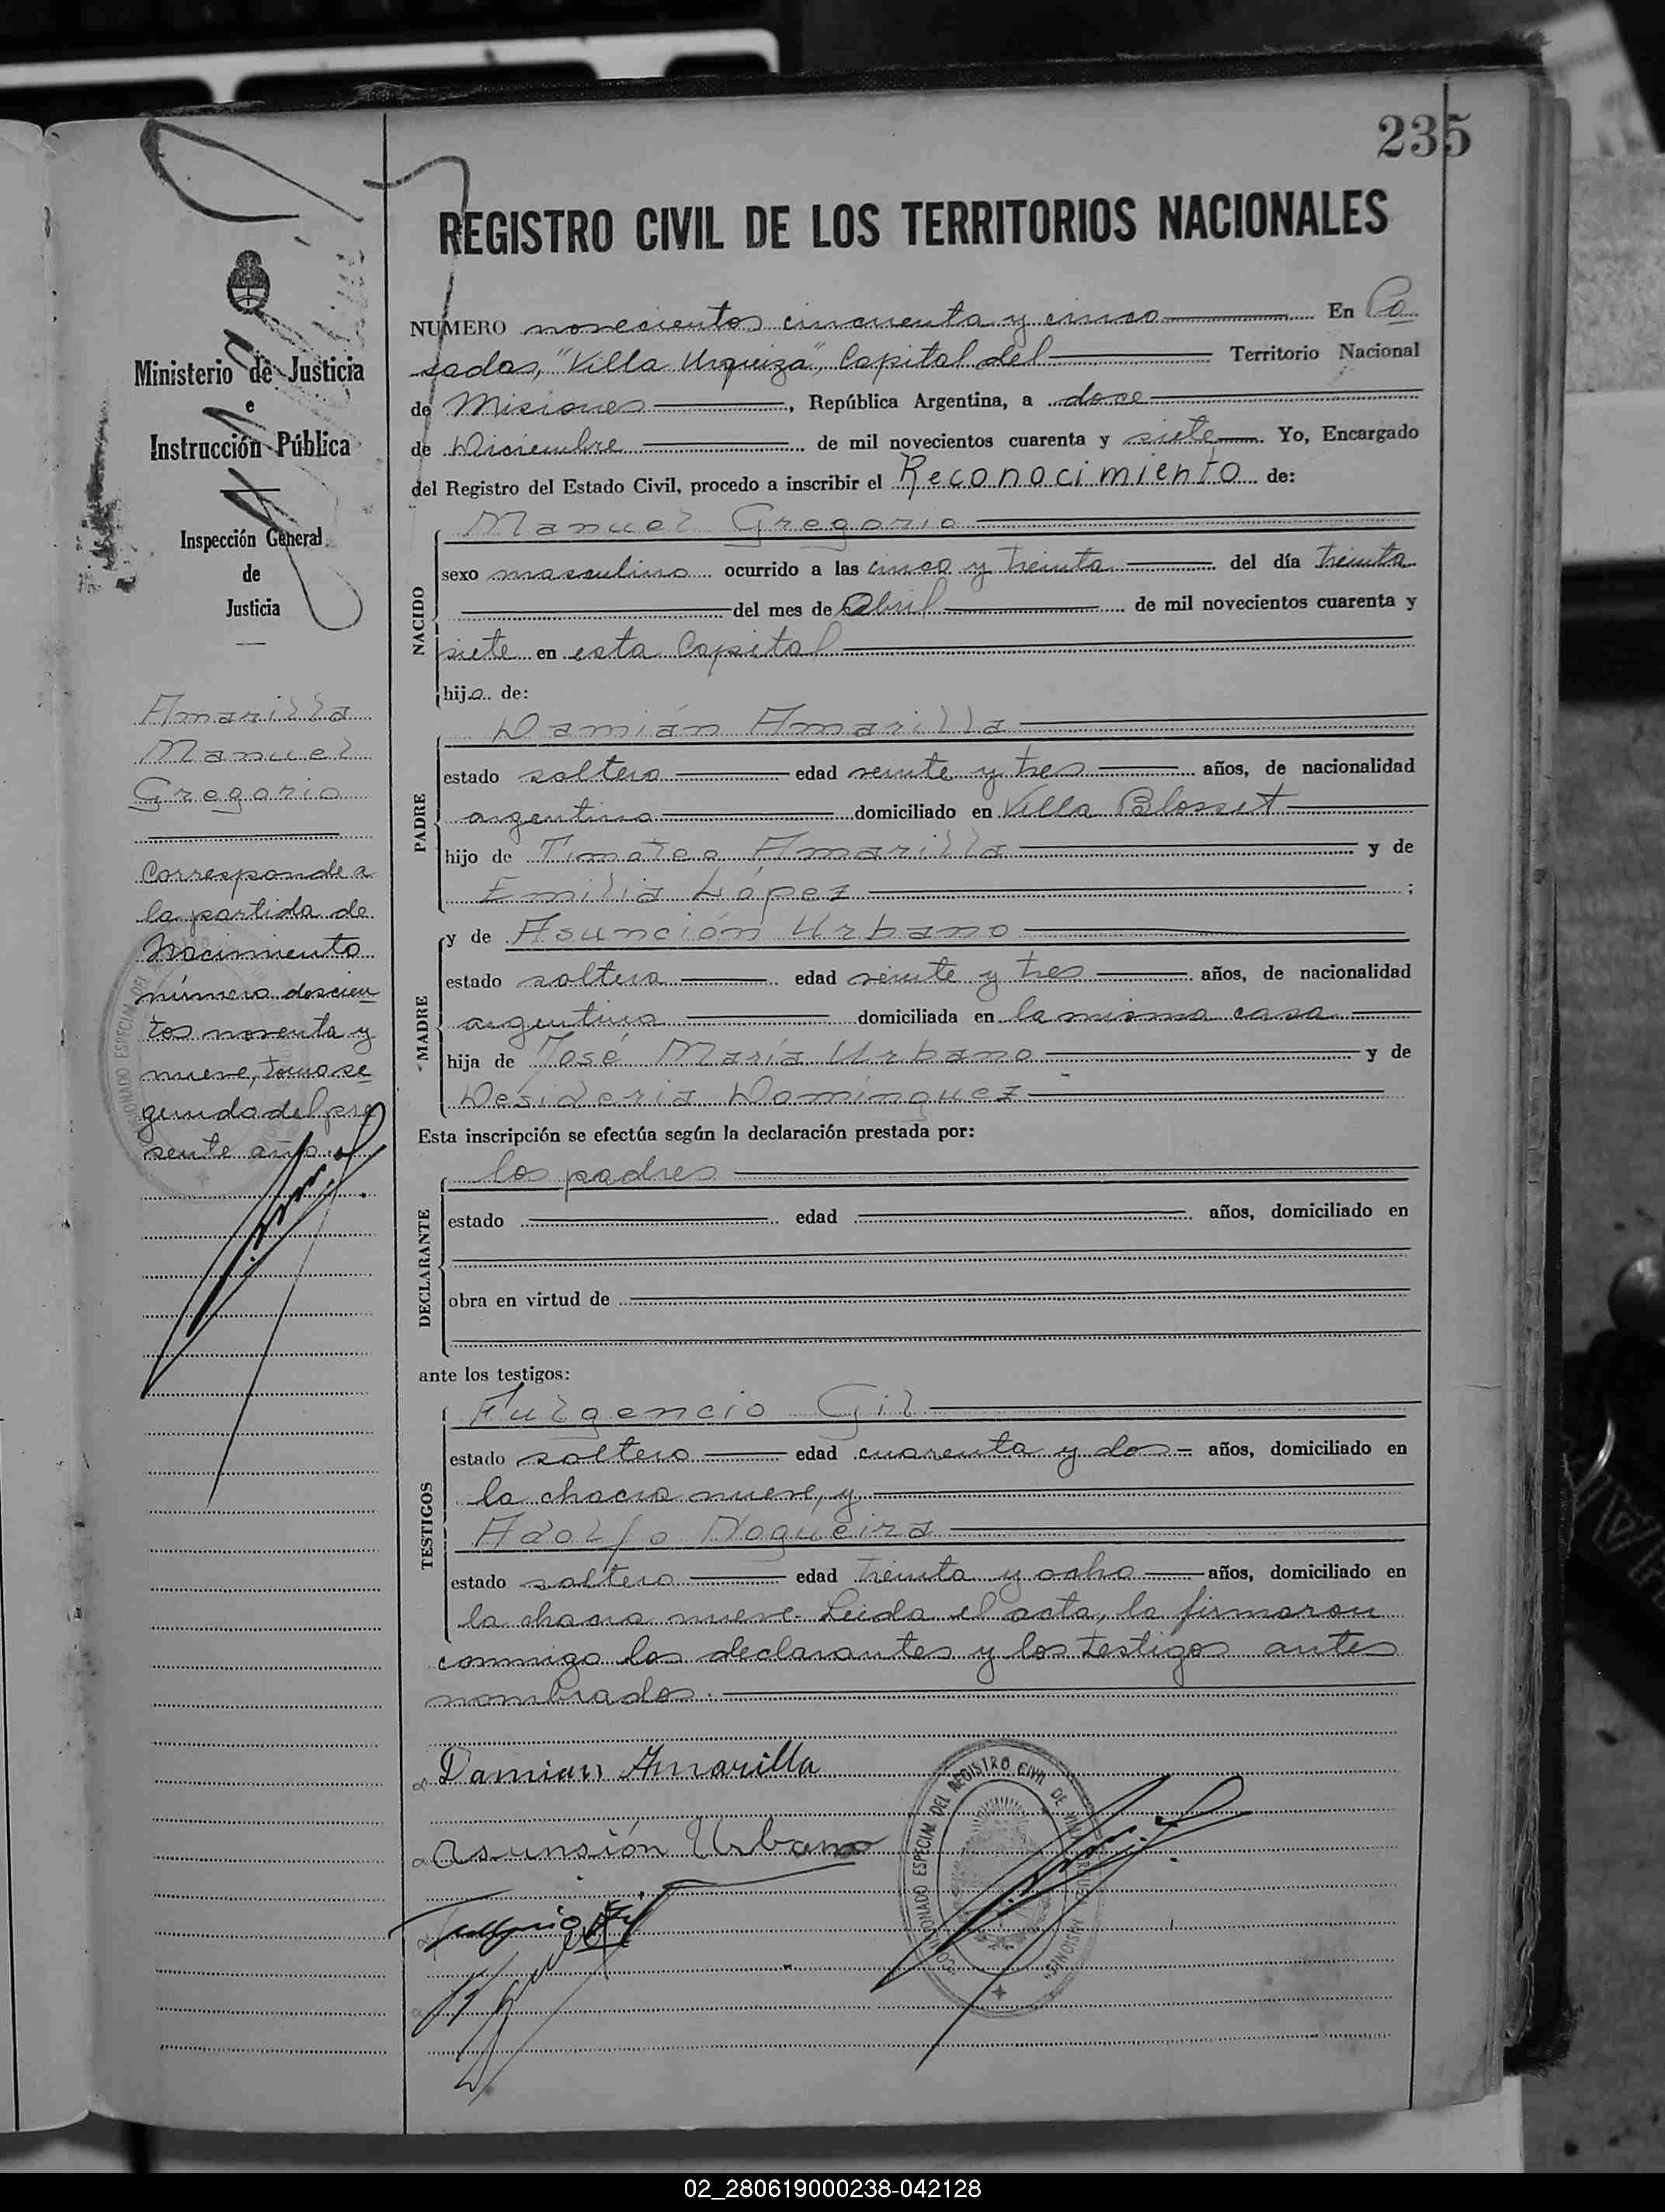 235
REGISTRO CIVIL DE LOS TERRITORIOS NACIONALES
Ministerio de Justicia
e
Instrucción Pública
Inspección General
de
Justicia
Amarilla
Manuel
Gregorio
Corresponde a
la partida de
Nacimiento
número doscien
tos noventa y
nueve, tomo se
gundo del pre
sente año.
NUMERO novecientos cincuenta y cinco En Po
sadas, "Villa Urquiza", Capital del Territorio Nacional
de Misiones, República Argentina, a doce
de Diciembre de mil novecientos cuarenta y siete. Yo, Encargado
del Registro del Estado Civil, procedo a inscribir el Reconocimiento de:
NACIDO
Manuel Gregorio
sexo masculino ocurrido a las cinco y treinta del día treinta
del mes de Abril de mil novecientos cuarenta y
siete en esta Capital
hijo de:
PADRE
Damián Amarilla
estado soltero edad veinte y tres años, de nacionalidad
argentino domiciliado en Villa Blosset
hijo de Timoteo Amarilla y de
Emilia López ;
MADRE
y de Asunción Urbano
estado soltera edad veinte y tres años, de nacionalidad
argentina domiciliada en la misma casa
hija de José María Urbano y de
Desideria Domínguez
Esta inscripción se efectúa según la declaración prestada por:
DECLARANTE
los padres
estado edad años, domiciliado en
obra en virtud de
ante los testigos:
TESTIGOS
Fulgencio Gil
estado soltero edad cuarenta y dos años, domiciliado en
la chacra nueve, y
Adolfo Nogueira
estado soltero edad treinta y ocho años, domiciliado en
la chacra nueve. Leida el acta, la firmaron
conmigo los declarantes y los testigos antes
nombrados.
Damian Amarilla
Asunsión Urbano
COMISIONADO ESPECIAL DEL REGISTRO CIVIL DE VILLA URQUIZA MISIONES
02_280619000238-042128